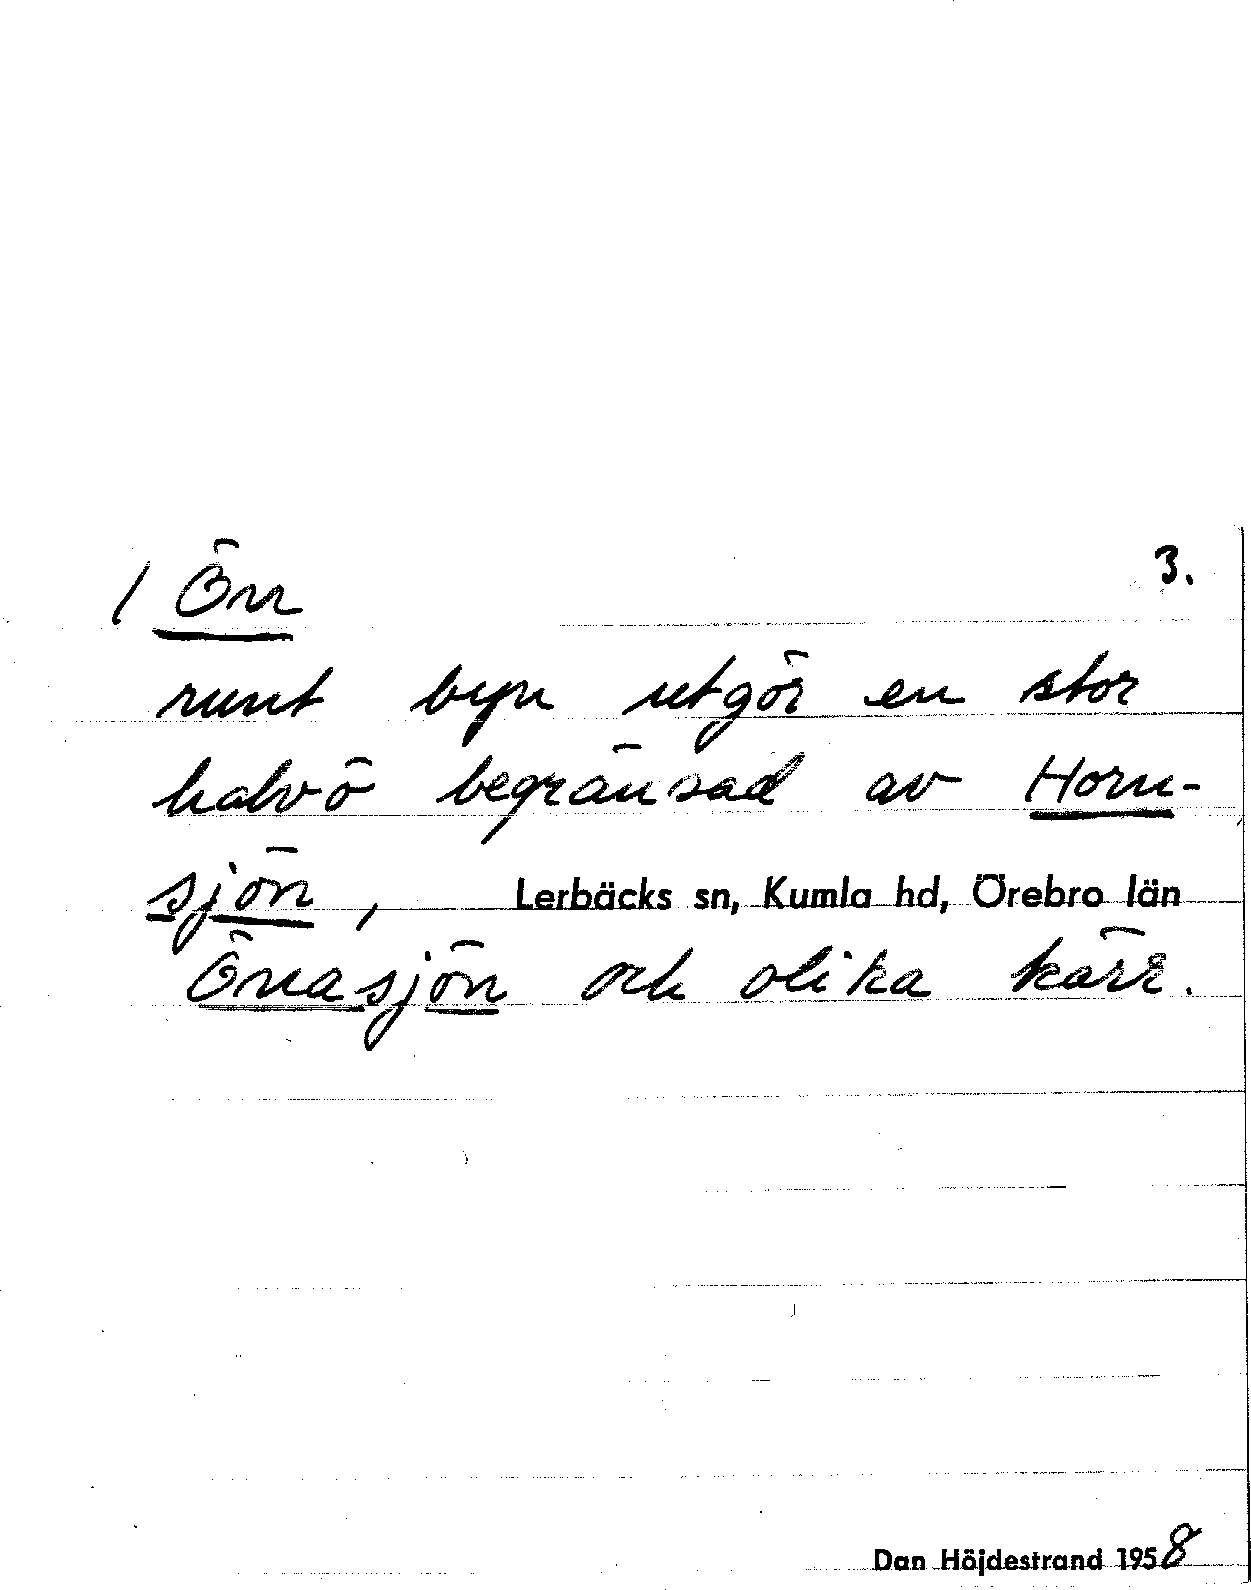 / Önn 3.
runt byn utgör en stor
halvö begränsad av Horn-
sjön, Lerbäcks sn, Kumla hd, Örebro län
Önnasjön och olika kärr.
Dan Höjdestrand 1958